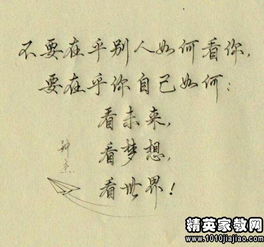 不要在乎别人如何看你,
要在乎你自己如何:
看未来,
看梦想,
看世界!
精英家教网
www.1010jiajiao.com